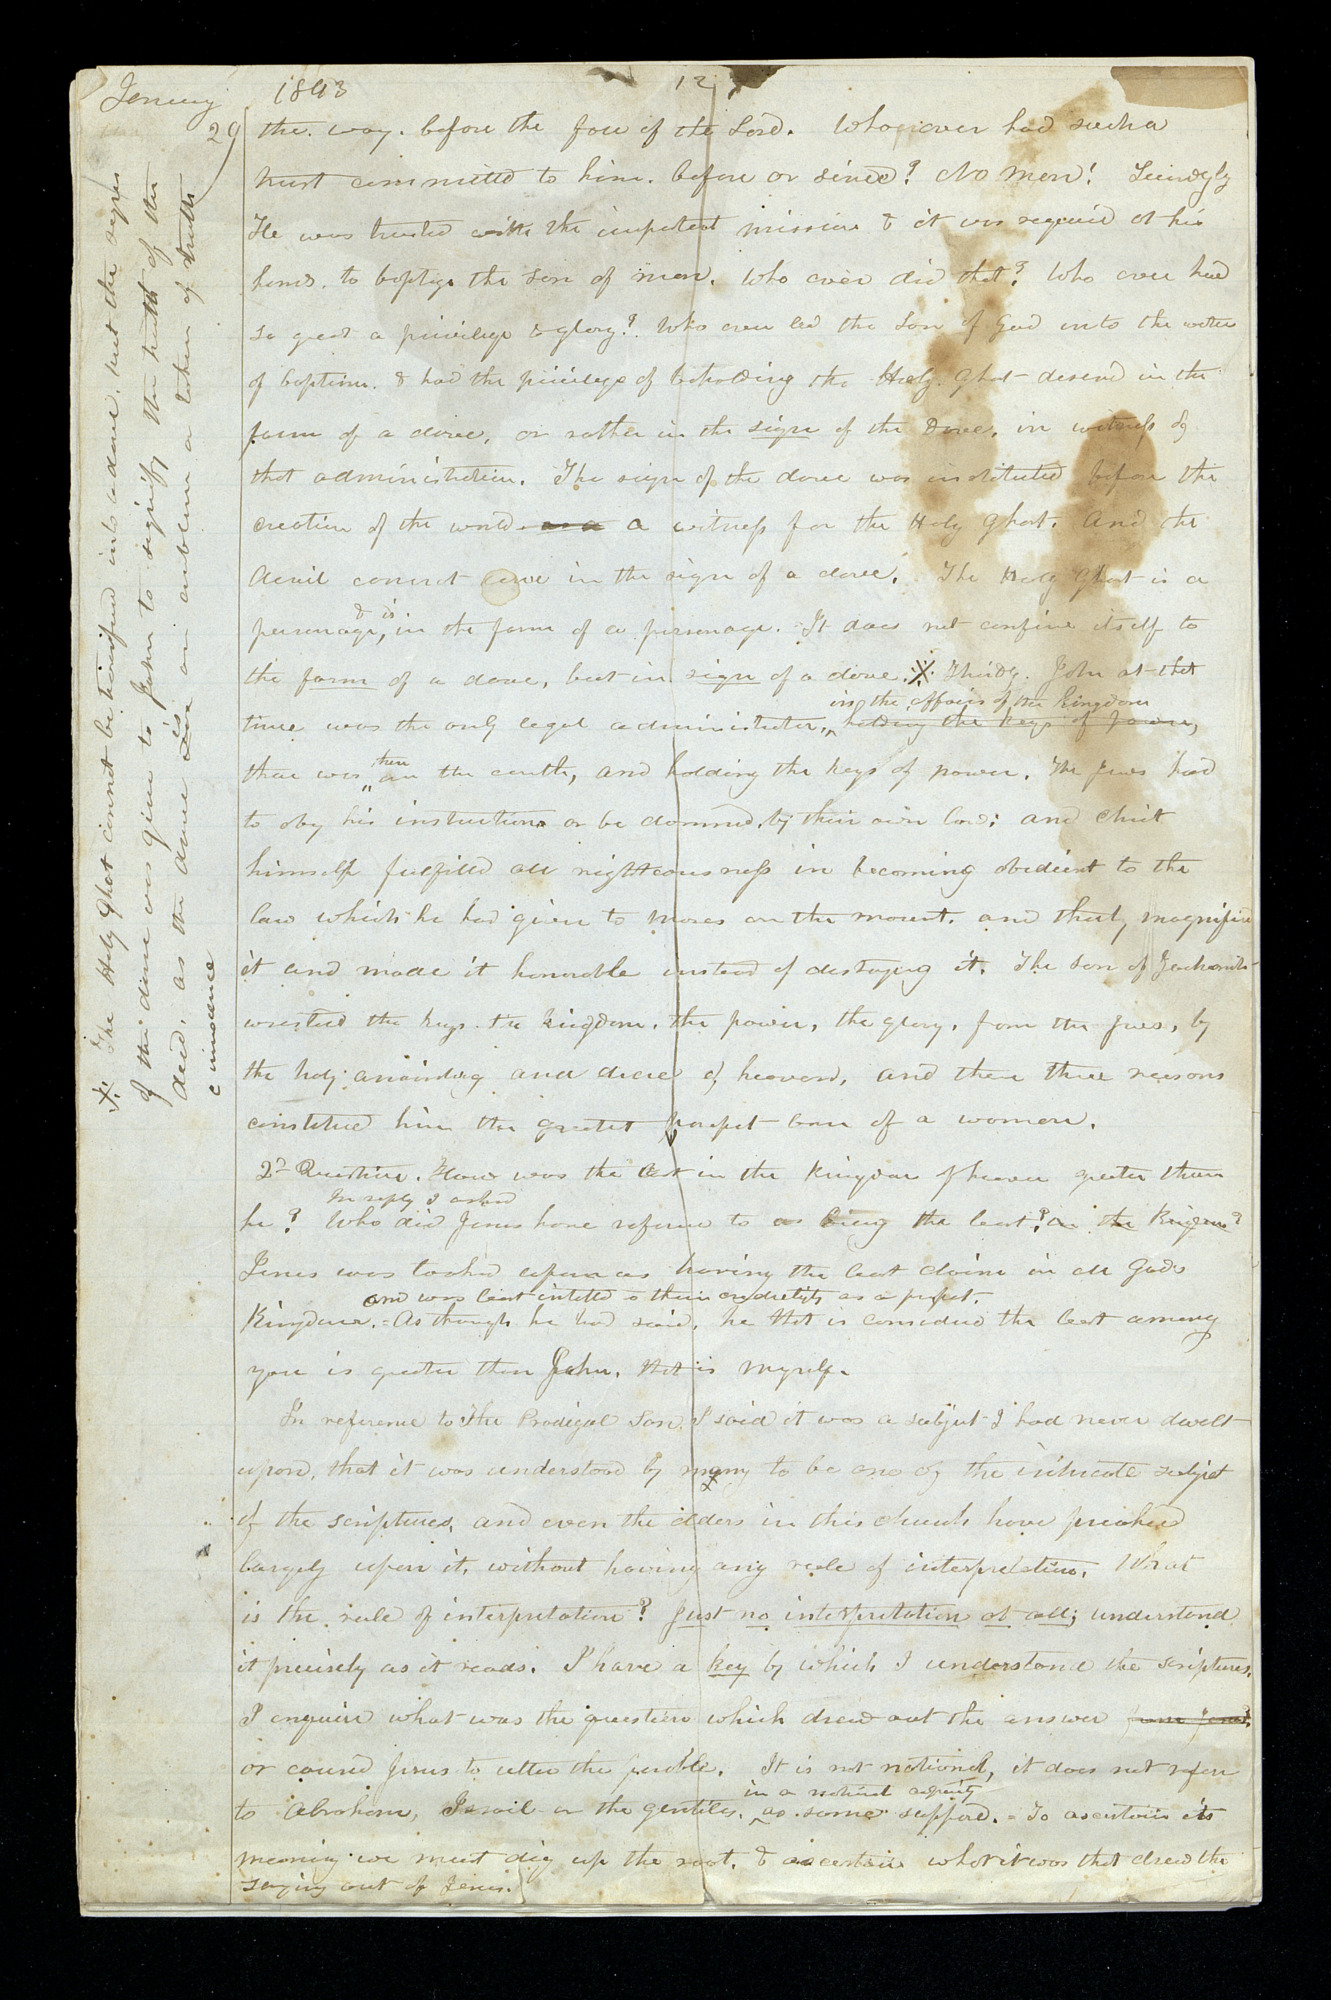 January 1843 12
29
the. way. before the face of the Lord. Whoever had such a
trust committed to him. before or since? No Man! Secondly
He was trusted with the important mission & it was required at his
hands. to baptize the son of man. Who ever did that? Who ever had
so great a privilege & glory? Who ever led the Son of God into the waters
of baptism. & had the privilege of beholding the Holy Ghost desend in the
form of a dove, or rather in the sign of the Dove, in witness of
that administration. The sign of the dove was instituted before the
creation of the world a witness for the Holy Ghost. And the
devil cannot come in the sign of a dove. The Holy Ghost is a
personage, & is in the form of a personage. It does not confine itself to
the form of a dove, but in sign of a dove. Thirdly. John at that
time was the only legal administrator, in the affairs of the kingdom holding the keys of power,
there was then on the earth, and holding the keys of power. The Jews had
to obey his instructions or be damned, by their own law; and Christ
himself fulfilled all righteousness in becoming obedient to the
law which he had given to Moses on the mount. and thereby magnified
it and made it honorable instead of destroying it. The son of Zachariah
wrested the keys. the kingdom, the power, the glory, from the Jews, by
the holy anointing and decree of heaven, and these three reasons
constitue him the greatest prophet born of a woman.
2d Question. How was the least in the kingdom of heaven greater than
he? In reply I asked Who did Jesus have reference to as being the least? in the Kingdom?
Jesus was looked upon as having the least claim in all Gods
Kingdom. and was least intitled to their credulity as a prophet. = As though he had said, he that is considered the least among
you is greater than John. that is myself.
In reference to the Prodigal Son. I said it was a subject I had never dwelt
upon, that it was understood by many to be one of the intricate subject
of the scriptures, and even the elders in this church have preached
largely upon it, without having any rule of interpretation. What
is the rule of interpretation? Just no interpretation at all; understand
it precisely as it reads. I have a key by which I understand the scriptures.
I enquire what was the question which drew out the answer from Jesus?
or caused Jesus to utter the parable. It is not national, it does not refer
to Abraham, Israil or the gentiles, in a national capacity as some suppose. = To ascertain its
meaning we must dig up the root. & ascertain what it was that drew the
saying out of Jesus.
The Holy Ghost cannot be transformed into a dove, but the sign
of the dove was given to John to signify the truth of the
deed, as the dove is an emblem a token of truth
innocence